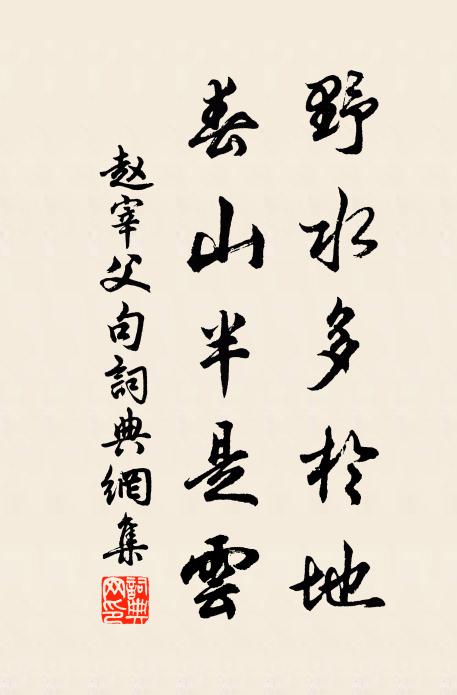 野水多於地
春山半是雲
赵宰父句詞典網集
詞典网印